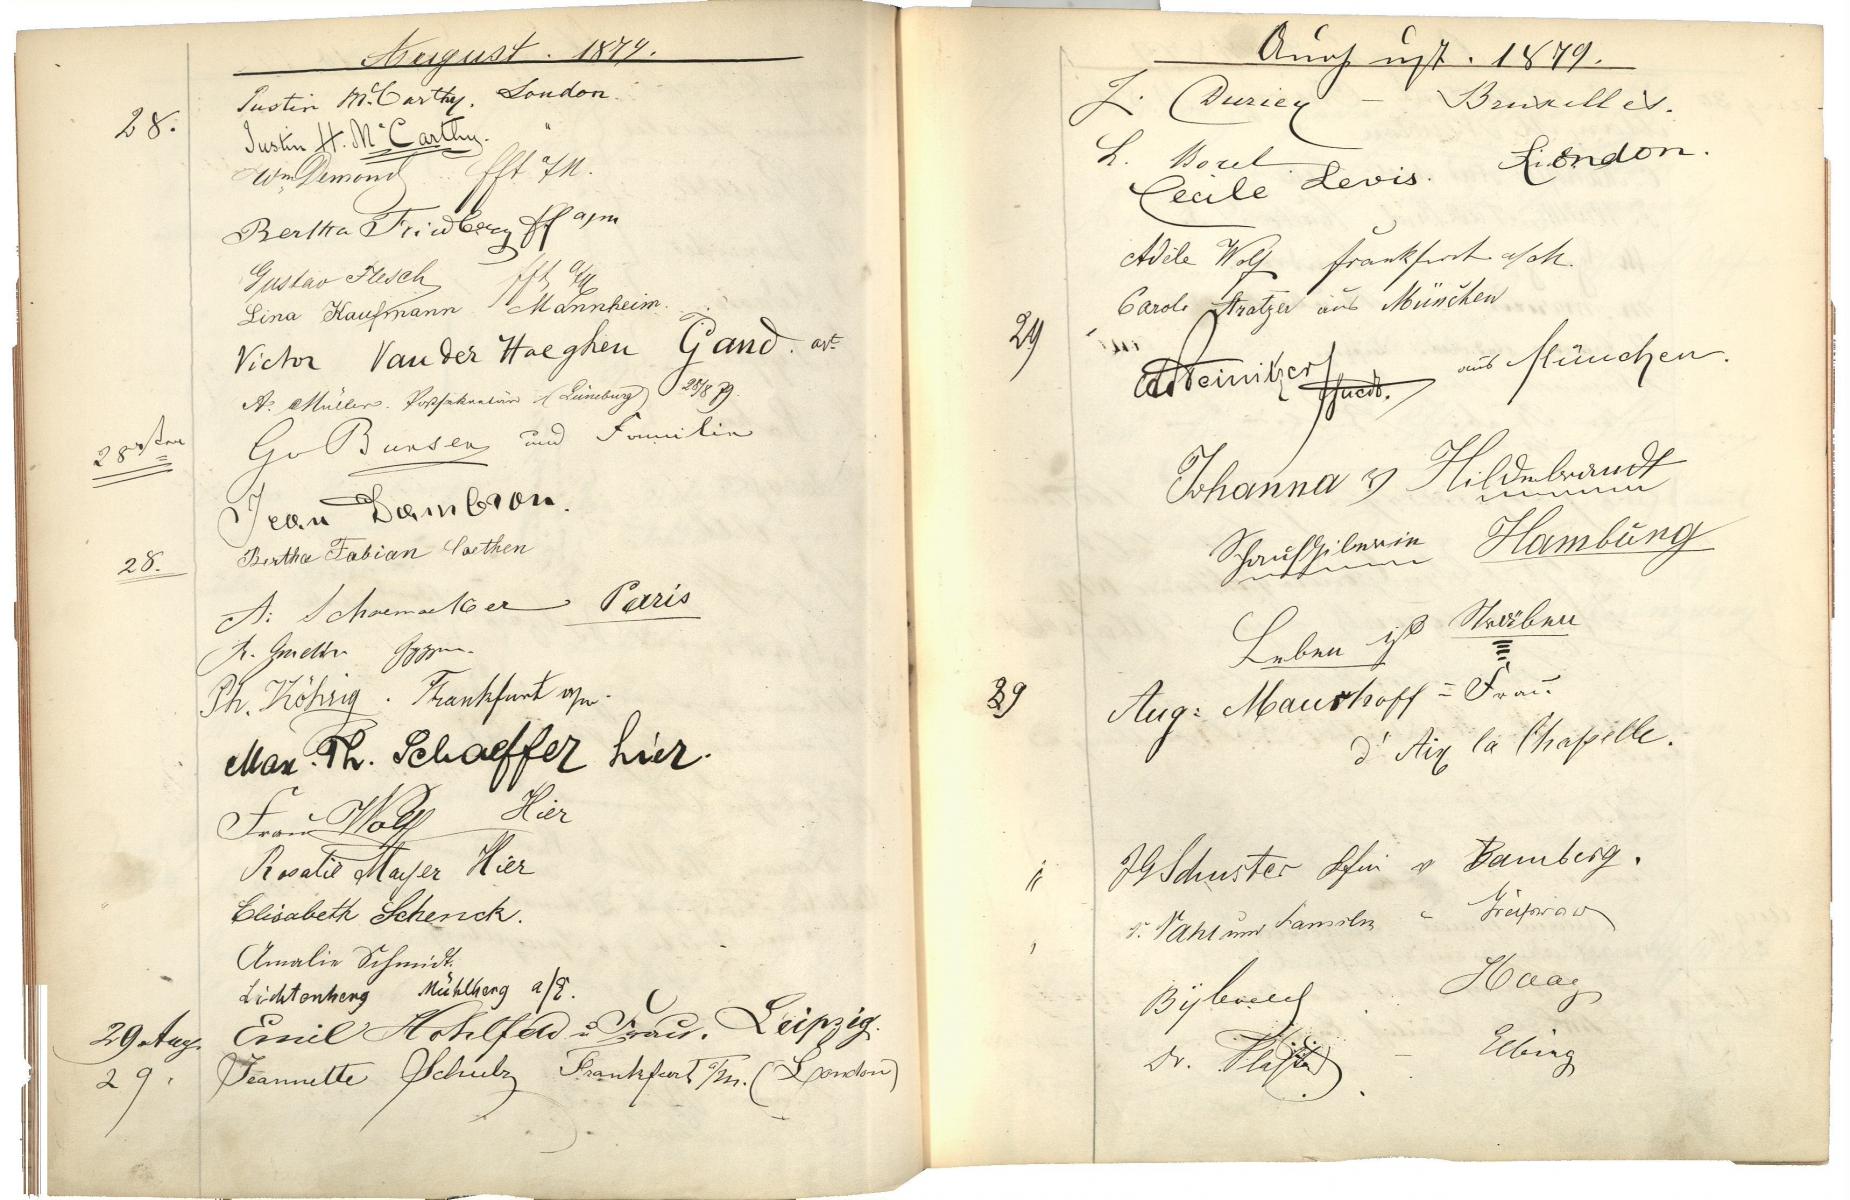 August. 1879.
28. Justin McCarthy. London.
Justin H. McCarthy. "
Wm Demond fft a/M.
Bertha Friedberg ff a/m
Gustav Flesch fft a/M
Lina Kaufmann Mannheim.
Victor Van der Haeghen Gand.
A. Müller. Postsekretär (Lüneburg) 28/8 79.
28sten Gv Bunsen und Familie
Jean Dambron.
28. Bertha Fabian Coethen
A. Schoemaker Paris
Ph. Röhrig. Frankfurt a/m.
Max. Th. Schaeffer hier.
Frau Wolff Hier
Rosalie Mayer Hier
Elisabeth Schenck.
Amalie Schmidt.
Lichtenberg Mühlberg a/E.
29 Aug. Emil Hohlfeld u Frau. Leipzig.
29. Jeannette Schulz Frankfurt a/m. (London)
August. 1879.
J. – Bruxelles.
L. London.
Cecile Levis.
Adèle Wolf Frankfurt a/M.
Carole Stratzer aus München
29 Steinitzer aus München.
Johanna v Hildebrandt
Schauspielerin Hamburg
Leben ist Streben
29 Aug: Maushoff = Frau
d' Aix la Chapelle.
" JG Schuster v Bamberg.
und Familie
Bijleveld Haag
Dr. – Elbing